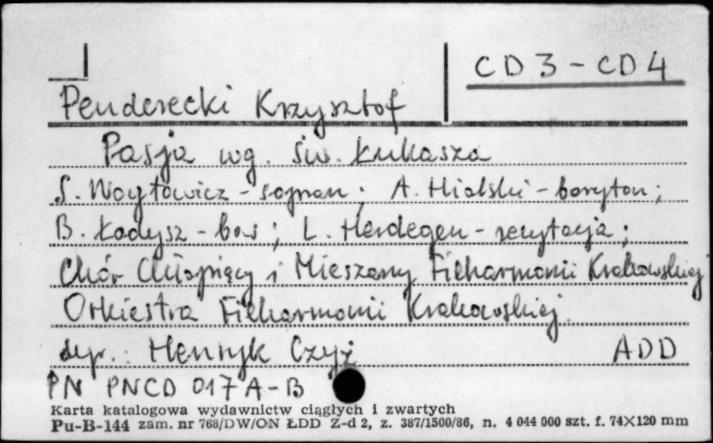 CD 3 - CD 4
Penderecki Krzysztof
Pasja wg. św. Łukasza
S. Woytowicz - sopran; A. Hiolski - baryton;
B. Ładysz - bas; L. Herdegen - recytacja;
Chór Chłopięcy i Mieszany Filharmonii Krakowskiej
Orkiestra Filharmonii Krakowskiej
dyr.: Henryk Czyż ADD
PN PNCD 017 A-B
Karta katalogowa wydawnictw ciągłych i zwartych
Pu-B-144 zam. nr 768/DW/ON ŁDD Z-d 2, z. 387/1500/86, n. 4 044 000 szt. f. 74×120 mm